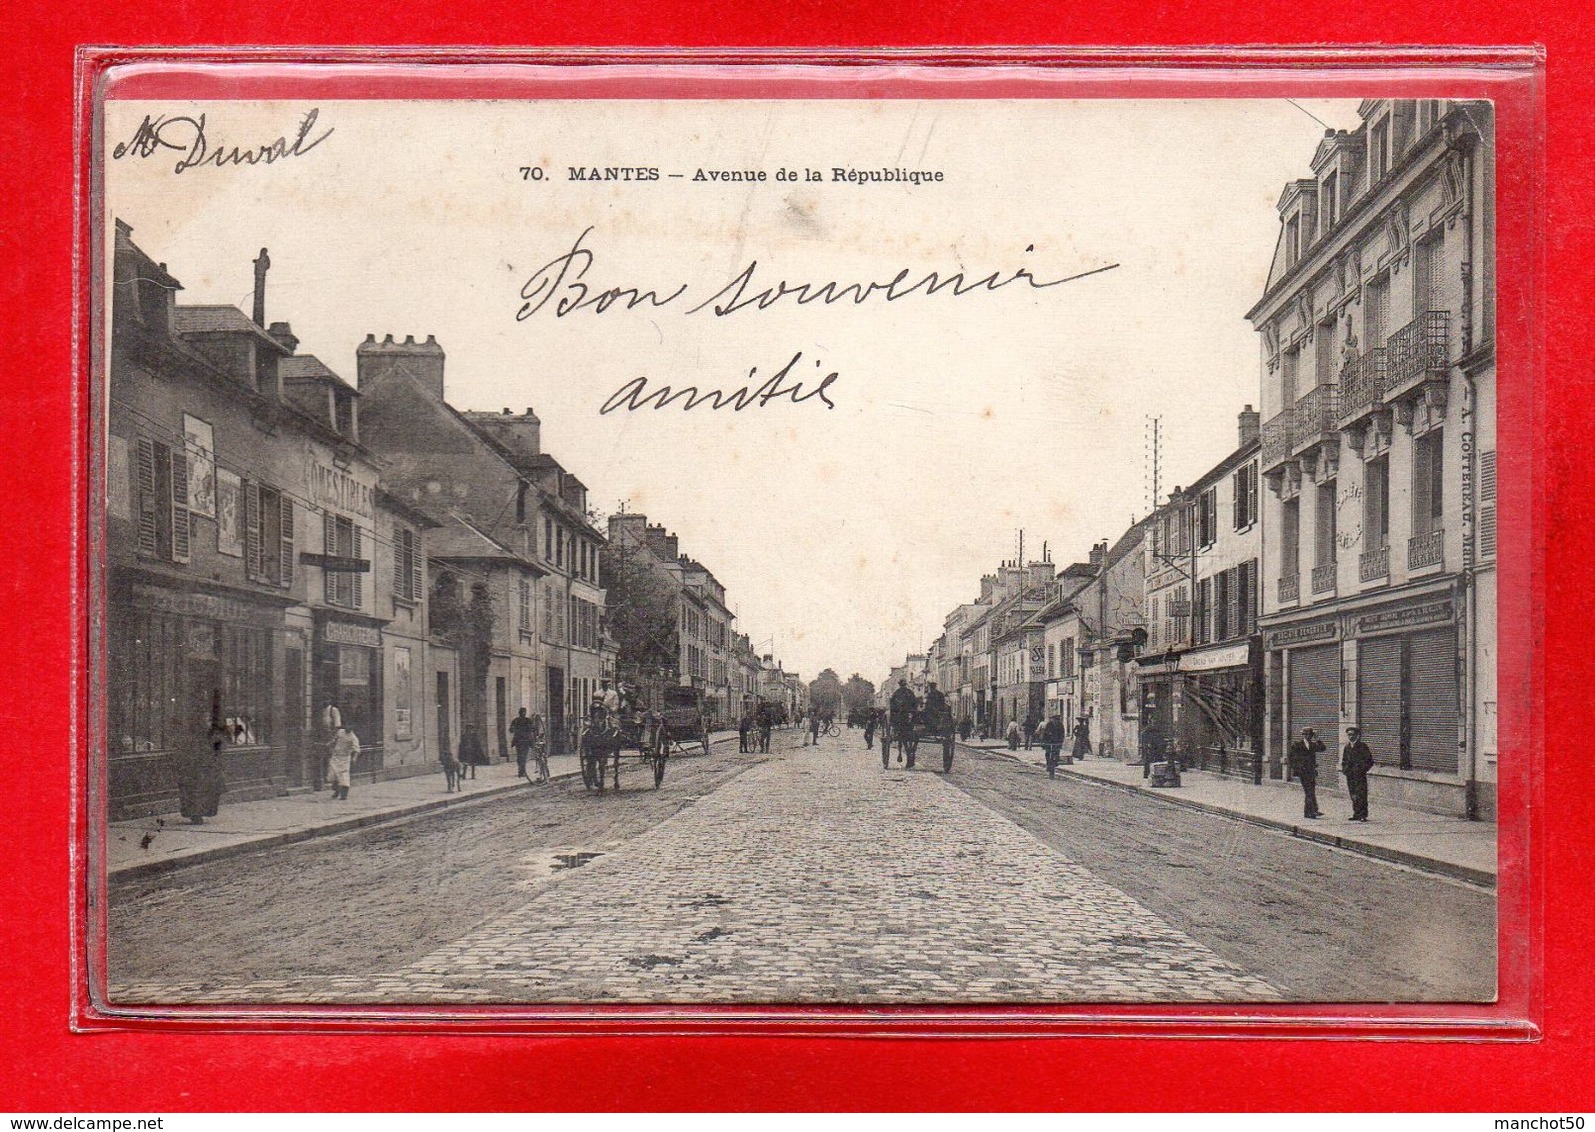 M Duval
70. MANTES — Avenue de la République
Bon souvenir
amitie
COMESTIBLES
CHARCUTERIE
SOCIÉTÉ GÉNÉRALE
A. COTTEREAU.
Visit www.delcampe.net
manchot50